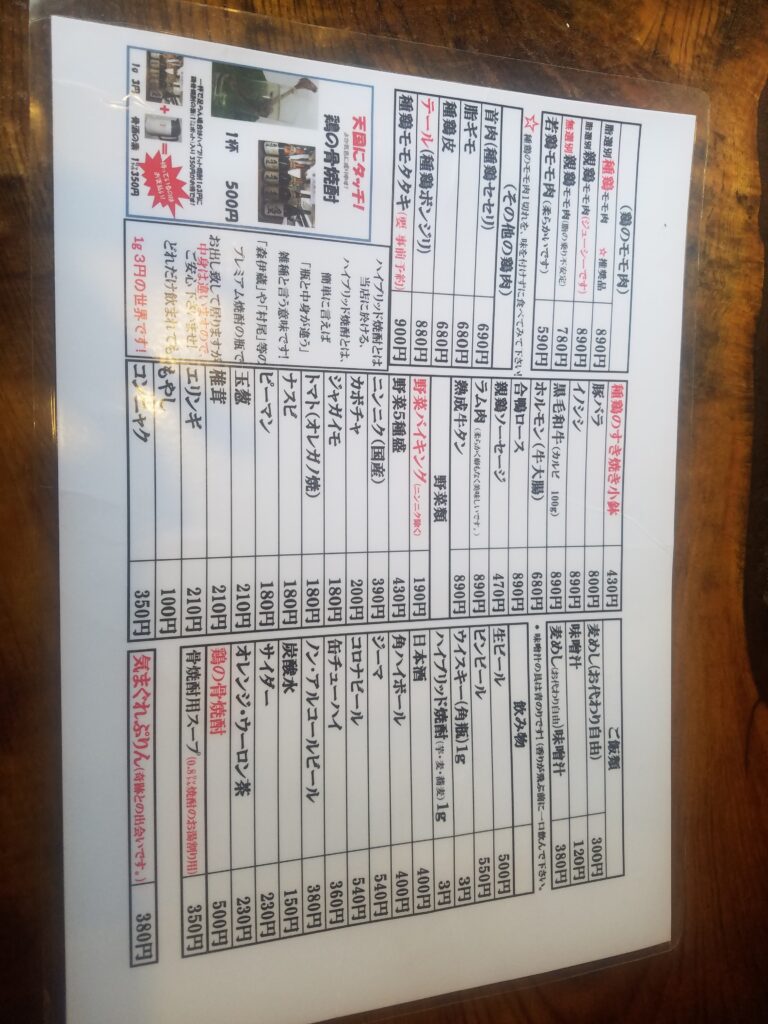 (鶏のモモ肉)
脂選別 種鶏モモ肉 ☆推奨品 890円
脂選別 親鶏モモ肉(ジューシーです) 890円
無選別 親鶏モモ肉(脂の乗り不安定) 780円
若鶏モモ肉(柔らかいです) 590円
☆種鶏のモモ肉1切れを、味を付けずに食べてみて下さい!
(その他の鶏肉)
首肉(種鶏セセリ) 690円
脂ギモ 680円
種鶏皮 680円
テール(種鶏ボンジリ) 880円
種鶏モモタタキ(要 事前予約) 900円
天国にタッチ!
鶏の骨焼酎
1杯 500円
1g 3円
骨酒の素
350円
ハイブリッド焼酎とは
当店に於ける、
ハイブリッド焼酎とは、
簡単に言えば
「瓶と中身が違う」
雑種と言う意味です!
「森伊蔵」や「村尾」等の
プレミアム焼酎の瓶で
お出し致して居りますが
中身は違いますので、
ご安心下さいませ!
どれだけ飲まれても
1g 3円の世界です!
種鶏のすき焼き小鉢 430円
豚バラ 800円
イノシシ 890円
黒毛和牛(カルビ 100g) 890円
ホルモン(牛大腸) 680円
合鴨ロース 890円
親鶏ソーセージ 470円
ラム肉(柔らかく癖もなく美味しいです。) 890円
熟成牛タン 890円
野菜類
野菜バイキング(ニンニク除く) 190円
野菜5種盛 430円
ニンニク(国産) 390円
カボチャ 200円
ジャガイモ 180円
トマト(オレガノ焼) 180円
ナスビ 180円
ピーマン 180円
玉葱 210円
椎茸 210円
エリンギ 210円
もやし 100円
コンニャク 350円
ご飯類
麦めし(お代わり自由) 300円
味噌汁 120円
麦めし(お代わり自由)味噌汁 380円
* 味噌汁の具は青のりです!(香りが飛ぶ前に一口飲んで下さい。
飲み物
生ビール 500円
ビンビール 550円
ウイスキー(角瓶)1g 3円
ハイブリッド焼酎(芋・麦・蕎麦)1g 3円
日本酒 400円
角ハイボール 400円
ジーマ 540円
コロナビール 540円
缶チューハイ 360円
ノン・アルコールビール 380円
炭酸水 150円
サイダー 230円
オレンジ・ウーロン茶 230円
鶏の骨焼酎 500円
骨焼酎用スープ(0.8㍑焼酎のお湯割り用) 350円
気まぐれぷりん(奇跡との出会いです。) 380円